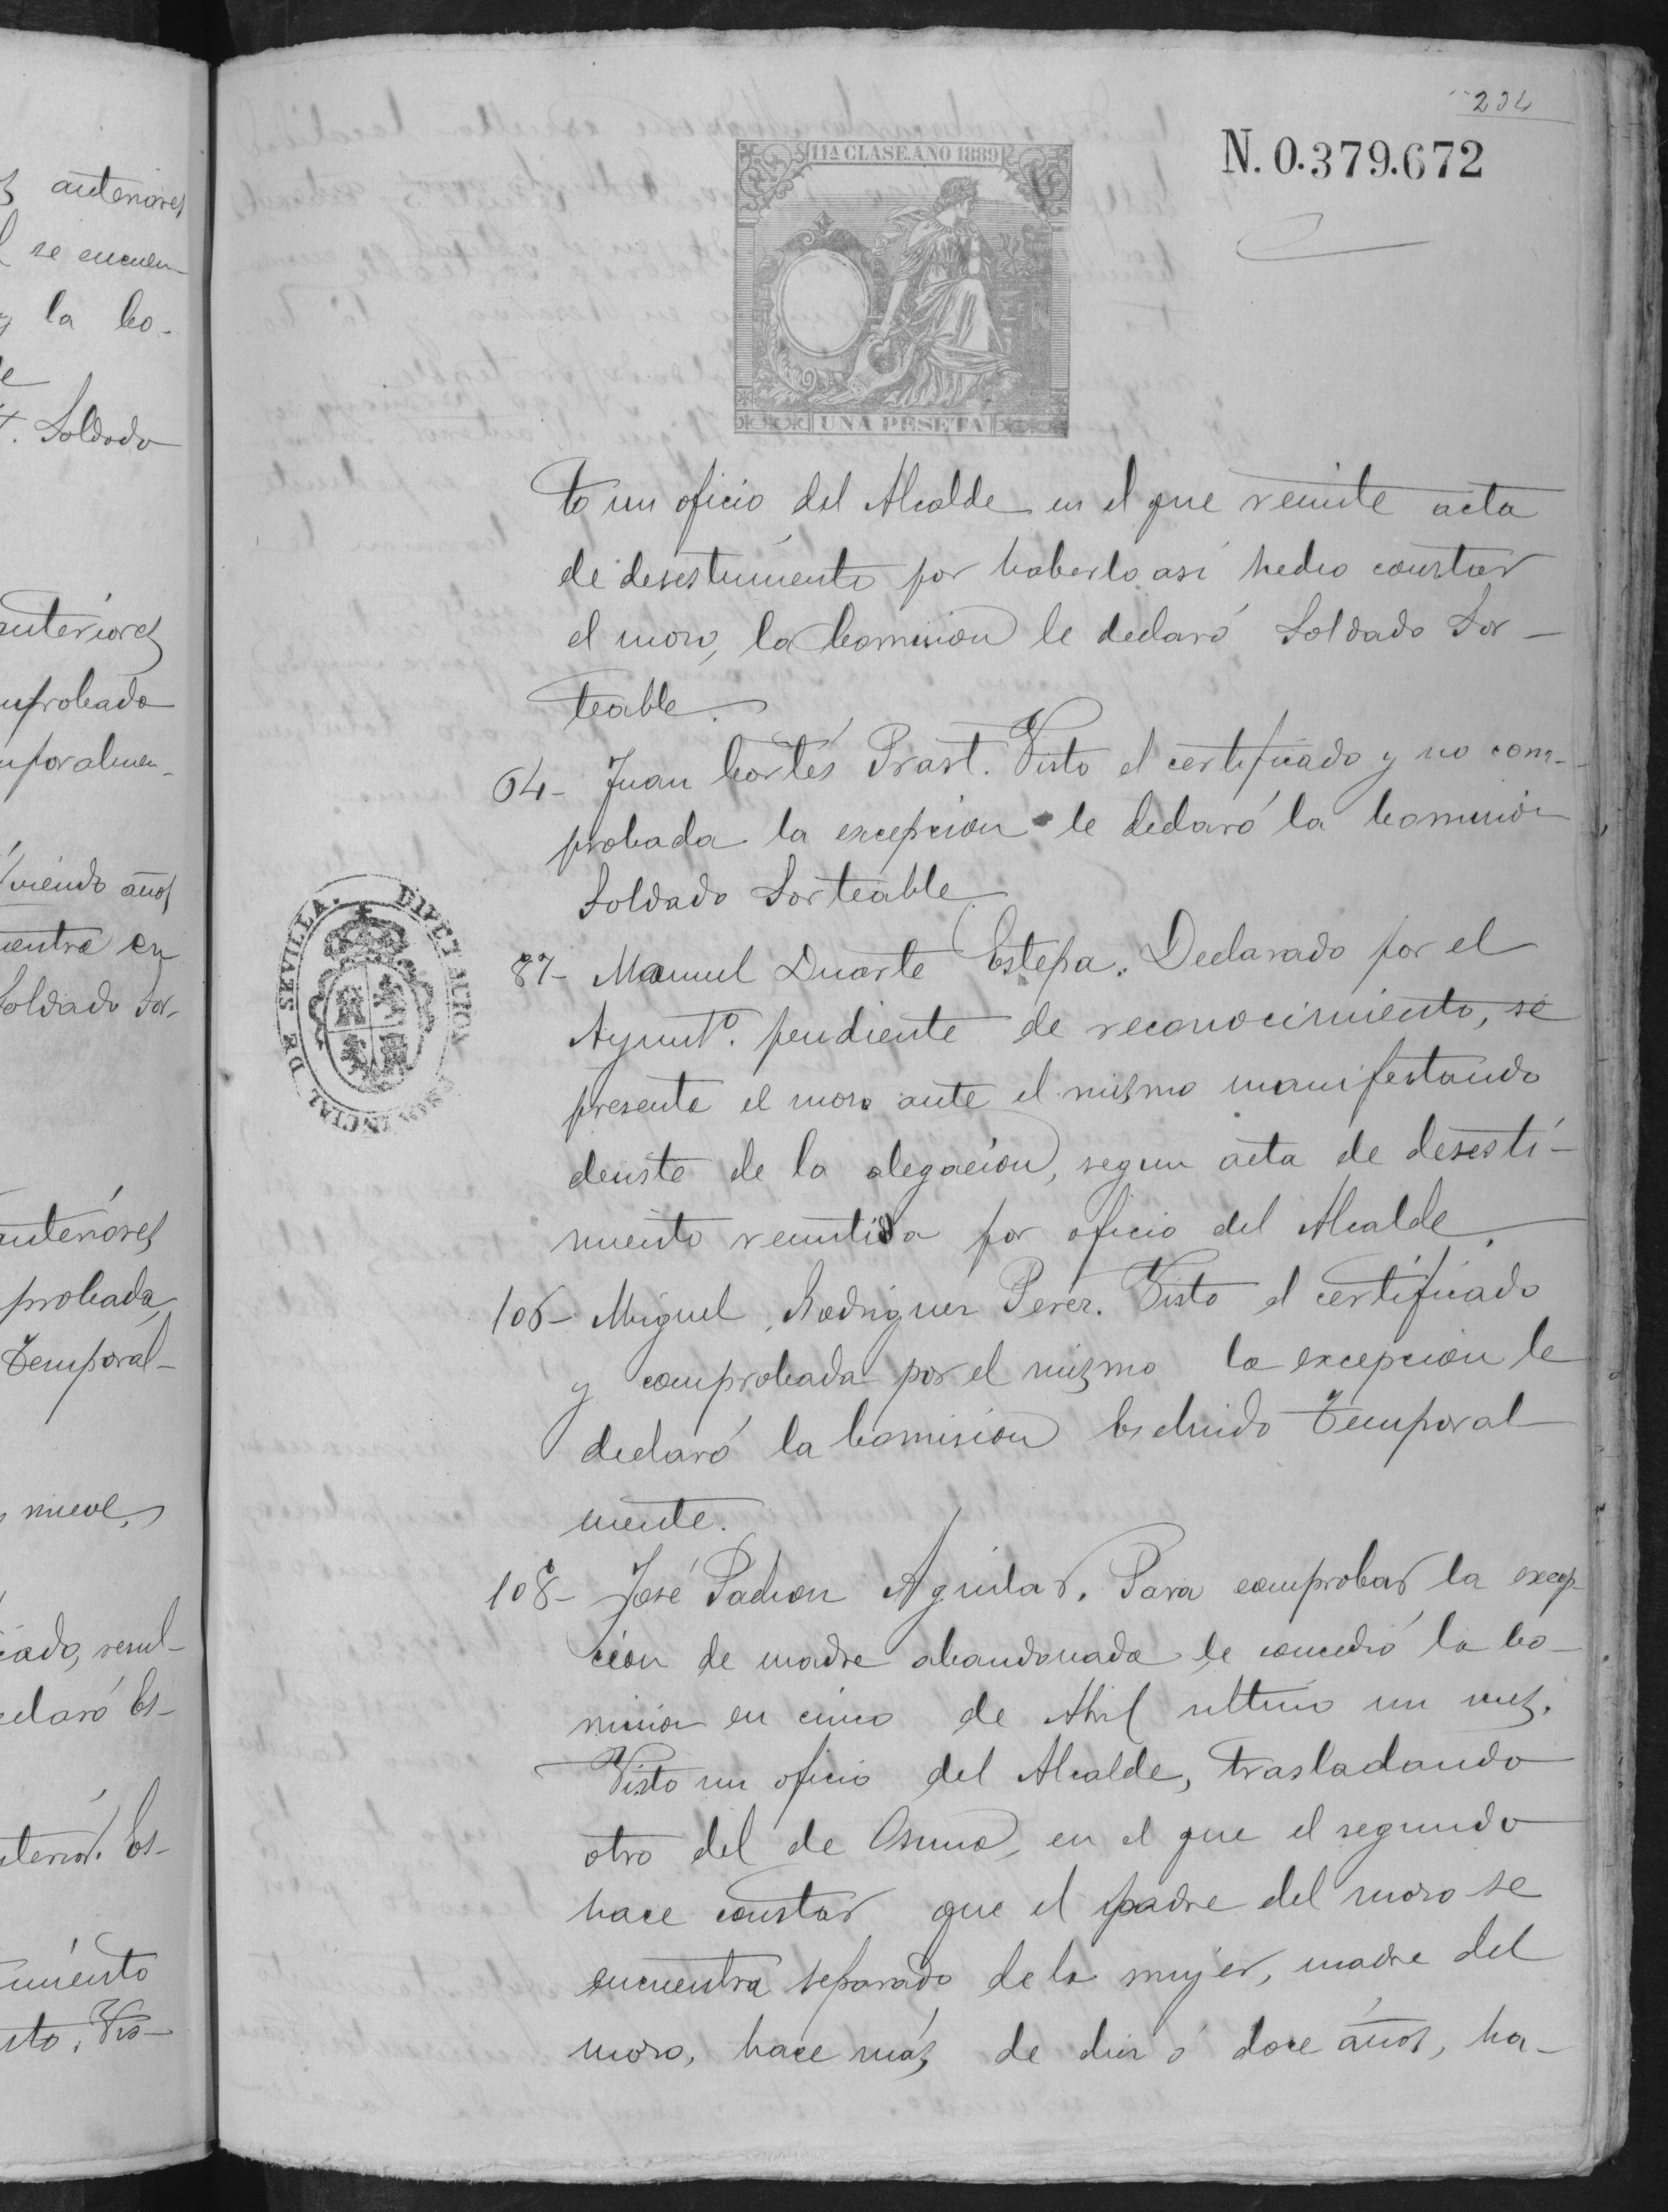 s anteriores
l se encuen-
y la Co-
e
t. Soldado
anteriores
mprobada
mporalmen-
viendo años
uentra en
Soldado Sor-
anteriores
probada,
Temporal-
nueve,
cado, resul-
eclaró Es-
terior. Es-
imiento
sto. Vis-
234
N. 0.379.672
11ª CLASE.AÑO 1889
UNA PESETA
to un oficio del Alcalde en el que remite acta
de desestimiento por haberlo así hecho constar
el mozo, la Comision le declaró Soldado Sor-
teable.
64- Juan Cortés Prast. Visto el certificado y no com-
probada la excepcion le declaró la Comision
Soldado Sorteable
87- Manuel Duarte Estepa. Declarado por el
Ayuntº. pendiente de reconocimiento, se
presenta el mozo ante el mismo manifestando
desiste de la alegacion, segun acta de desesti-
miento remitida por oficio del Alcalde.
106- Miguel Rodriguez Perez. Visto el certificado
y comprobada por el mismo la excepcion le
declaró la Comision Escluido Temporal
mente.
108- José Padron Aguilar. Para comprobar la excep-
cion de madre abandonada le concedió la Co-
mision en cinco de Abril ultimo un mes.
Visto un oficio del Alcalde, trasladando
otro del de Osuna, en el que el segundo
hace constar que el padre del mozo se
encuentra separado de la mujer, madre del
mozo, hace más de diez ó doce años, ha-
DIPUTACION PROVINCIAL DE SEVILLA.